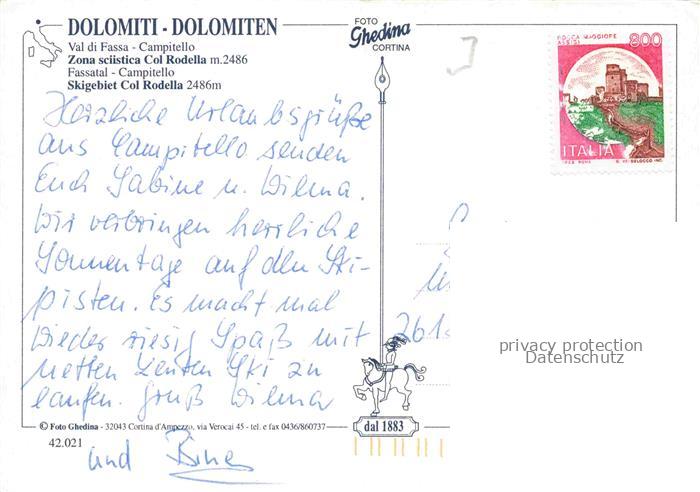 DOLOMITI - DOLOMITEN
Val di Fassa - Campitello
Zona sciistica Col Rodella m.2486
Fassatal - Campitello
Skigebiet Col Rodella 2486m
FOTO
Ghedina
CORTINA
ROCCA MAGGIORE
ASSISI
800
ITALIA
Herzliche Urlaubsgrüße
aus Campitello senden
Euch Sabine u. Wilma.
Wir verbringen herrliche
Sonnentage auf den Ski-
pisten. Es macht mal
wieder riesig Spaß mit
netten Leuten Ski zu
laufen. Gruß Wilma
und Bine
261
privacy protection
Datenschutz
dal 1883
© Foto Ghedina - 32043 Cortina d'Ampezzo, via Verocai 45 - tel. e fax 0436/860737
42.021